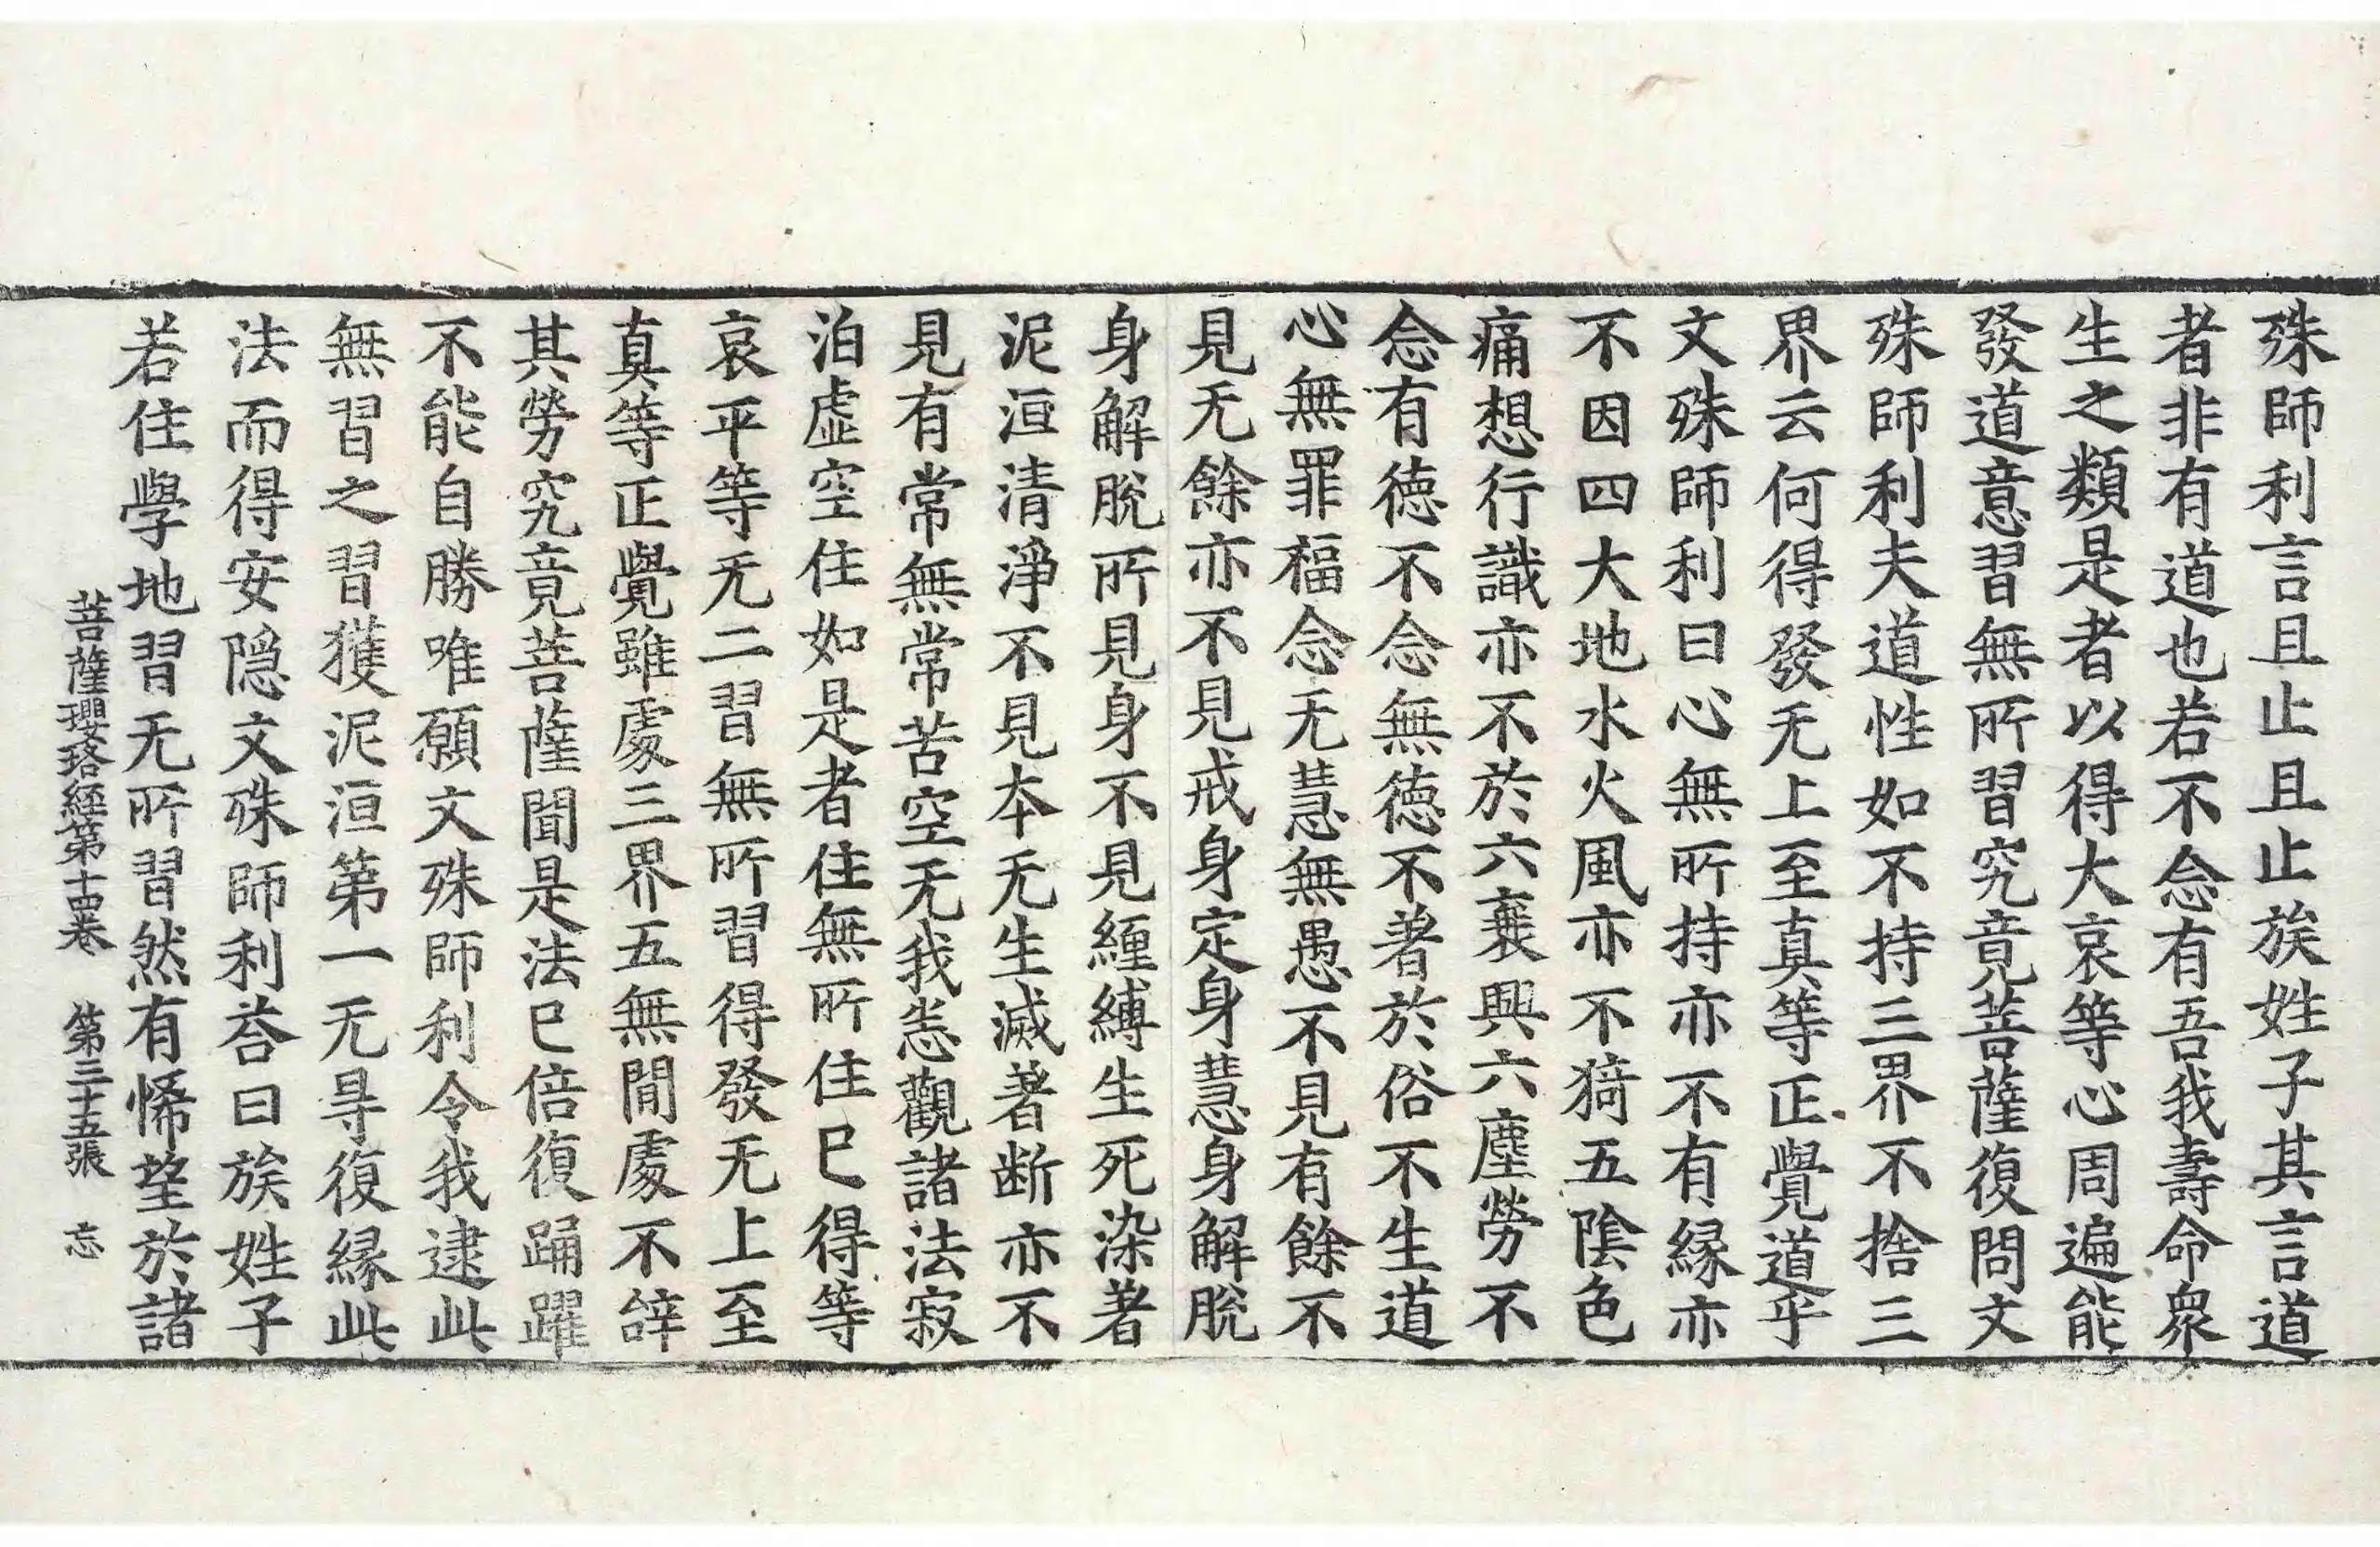 殊師利言且止且止族姓子其言道
者非有道也若不念有吾我壽命衆
生之類是者以得大哀等心周遍能
發道意習無所習究竟菩薩復問文
殊師利夫道性如不持三界不捨三
界云何得發无上至真等正覺道乎
文殊師利曰心無所持亦不有緣亦
不因四大地水火風亦不猗五陰色
痛想行識亦不於六衰興六塵勞不
念有德不念無德不著於俗不生道
心無罪福念无慧無愚不見有餘不
見无餘亦不見戒身定身慧身解脫
身解脫所見身不見纏縛生死染著
泥洹清淨不見本无生滅著断亦不
見有常無常苦空无我恙觀諸法寂
泊虛空住如是者住無所住已得等
哀平等无二習無所習得發无上至
真等正覺雖處三界五無間處不辝
其勞究竟菩薩聞是法已倍復踊躍
不能自勝唯願文殊師利令我逮此
無習之習獲泥洹第一无㝵復緣此
法而得安隱文殊師利荅曰族姓子
若住學地習无所習然有悕望於諸
菩薩瓔珞經第十四卷 第三十五張 忘